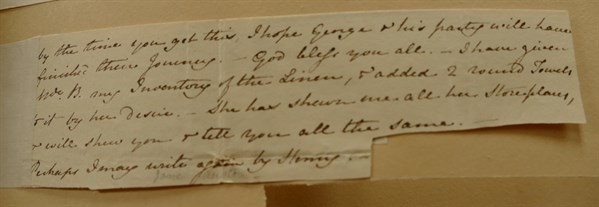 by the time you get this, I hope George & his party will have
finish'd their Journey. — God bless you all. — I have given
Mrs. B. my Inventory of the Linen, & added 2 round Towels
to it by her desire. — She has shewn me all her Storeplaces,
& will shew you & tell you all the same. —
Perhaps I may write again by Henry. —
Jane Austen